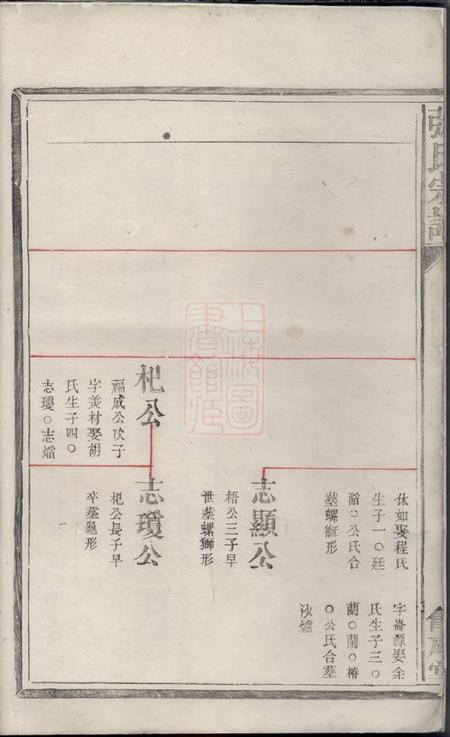 張氏宗譜
休如娶程氏
生子一○廷
○公氏合
墓螺獅形
字崙源娶余
氏生子三○
蘭○蘭○椿
○公氏合墓
志顯公
梧公三子早
世墓螺獅形
杞公
福成公次子
字美村娶胡
氏生子四○
志瓊○志
志瓊公
杞公長子早
卒墓龜形
上海圖書館藏